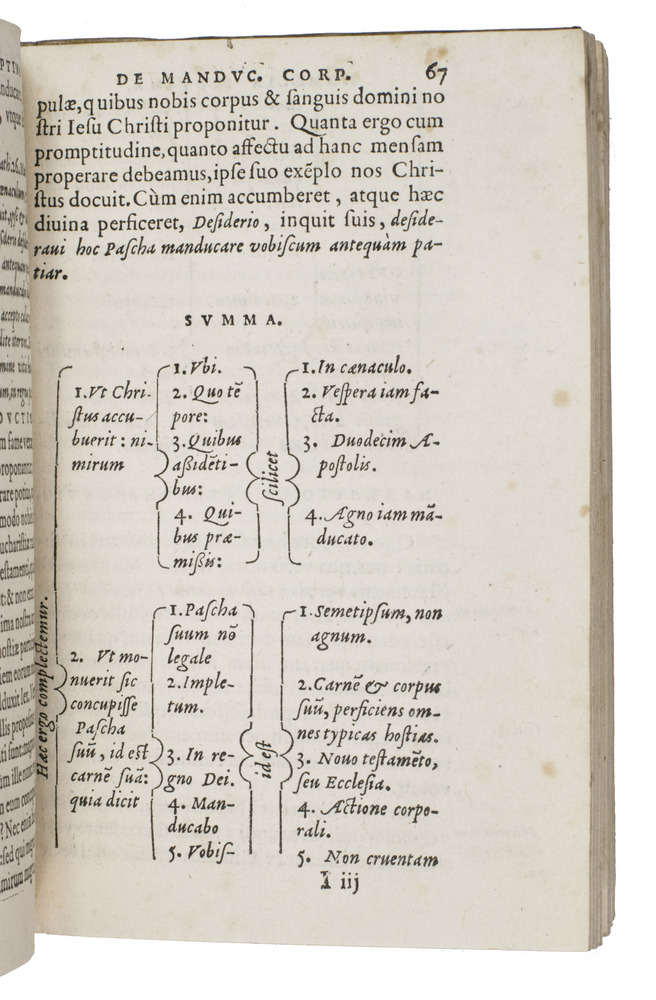 DE MANDVC. CORP. 67
pulæ, quibus nobis corpus & sanguis domini no
stri Iesu Christi proponitur. Quanta ergo cum
promptitudine, quanto affectu ad hanc mensam
properare debeamus, ipse suo exẽplo nos Chri-
stus docuit. Cùm enim accumberet, atque hæc
diuina perficeret, Desiderio, inquit suis, deside-
raui hoc Pascha manducare vobiscum antequàm pa-
tiar.
SVMMA.
Hæc ergo complectemur.
1. Vt Chri-
stus accu-
buerit: ni-
mirum
1. Vbi.
2. Quo tẽ
pore:
3. Quibus
aßidẽti-
bus:
4. Qui-
bus præ-
mißis:
scilicet
1. In cænaculo.
2. Vespera iam fa-
cta.
3. Duodecim A-
postolis.
4. Agno iam mã-
ducato.
2. Vt mo-
nuerit sic
concupisse
Pascha
suũ, id est
carnẽ suã:
quia dicit
1. Pascha
suum nõ
legale
2. Imple-
tum.
3. In re-
gno Dei.
4. Man-
ducabo
5. Vobis-
id est
1. Semetipsum, non
agnum.
2. Carnẽ & corpus
suũ, perficiens om-
nes typicas hostias.
3. Nouo testamẽto,
seu Ecclesia.
4. Actione corpo-
rali.
5. Non cruentam
I iij